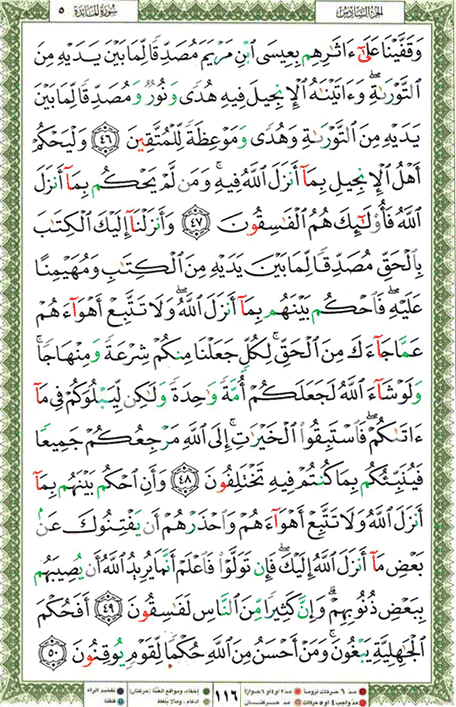 الجزء السادس سورة المائدة ٥
وَقَفَّيْنَا عَلَىٰٓ ءَاثَٰرِهِم بِعِيسَى ٱبْنِ مَرْيَمَ مُصَدِّقًا لِّمَا بَيْنَ يَدَيْهِ مِنَ
ٱلتَّوْرَىٰةِ ۖ وَءَاتَيْنَٰهُ ٱلْإِنجِيلَ فِيهِ هُدًى وَنُورٌ وَمُصَدِّقًا لِّمَا بَيْنَ
يَدَيْهِ مِنَ ٱلتَّوْرَىٰةِ وَهُدًى وَمَوْعِظَةً لِّلْمُتَّقِينَ ٤٦ وَلْيَحْكُمْ
أَهْلُ ٱلْإِنجِيلِ بِمَآ أَنزَلَ ٱللَّهُ فِيهِ ۚ وَمَن لَّمْ يَحْكُم بِمَآ أَنزَلَ
ٱللَّهُ فَأُو۟لَٰٓئِكَ هُمُ ٱلْفَٰسِقُونَ ٤٧ وَأَنزَلْنَآ إِلَيْكَ ٱلْكِتَٰبَ
بِٱلْحَقِّ مُصَدِّقًا لِّمَا بَيْنَ يَدَيْهِ مِنَ ٱلْكِتَٰبِ وَمُهَيْمِنًا
عَلَيْهِ ۖ فَٱحْكُم بَيْنَهُم بِمَآ أَنزَلَ ٱللَّهُ ۖ وَلَا تَتَّبِعْ أَهْوَآءَهُمْ
عَمَّا جَآءَكَ مِنَ ٱلْحَقِّ ۚ لِكُلٍّ جَعَلْنَا مِنكُمْ شِرْعَةً وَمِنْهَاجًا ۚ
وَلَوْ شَآءَ ٱللَّهُ لَجَعَلَكُمْ أُمَّةً وَٰحِدَةً وَلَٰكِن لِّيَبْلُوَكُمْ فِى مَآ
ءَاتَىٰكُمْ ۖ فَٱسْتَبِقُوا۟ ٱلْخَيْرَٰتِ ۚ إِلَى ٱللَّهِ مَرْجِعُكُمْ جَمِيعًا
فَيُنَبِّئُكُم بِمَا كُنتُمْ فِيهِ تَخْتَلِفُونَ ٤٨ وَأَنِ ٱحْكُم بَيْنَهُم بِمَآ
أَنزَلَ ٱللَّهُ وَلَا تَتَّبِعْ أَهْوَآءَهُمْ وَٱحْذَرْهُمْ أَن يَفْتِنُوكَ عَنۢ
بَعْضِ مَآ أَنزَلَ ٱللَّهُ إِلَيْكَ ۖ فَإِن تَوَلَّوْا۟ فَٱعْلَمْ أَنَّمَا يُرِيدُ ٱللَّهُ أَن يُصِيبَهُم
بِبَعْضِ ذُنُوبِهِمْ ۗ وَإِنَّ كَثِيرًا مِّنَ ٱلنَّاسِ لَفَٰسِقُونَ ٤٩ أَفَحُكْمَ
ٱلْجَٰهِلِيَّةِ يَبْغُونَ ۚ وَمَنْ أَحْسَنُ مِنَ ٱللَّهِ حُكْمًا لِّقَوْمٍ يُوقِنُونَ ٥٠
مد ٦ حركات لزوماً مد ٢ او ٤ او ٦ جوازاً إخفاء، ومواقع الغنة (حركتان) تفخيم الراء
مد واجب ٤ او ٥ حركات مد حركتان ادغام، وما لا يلفظ قلقلة
١١٦